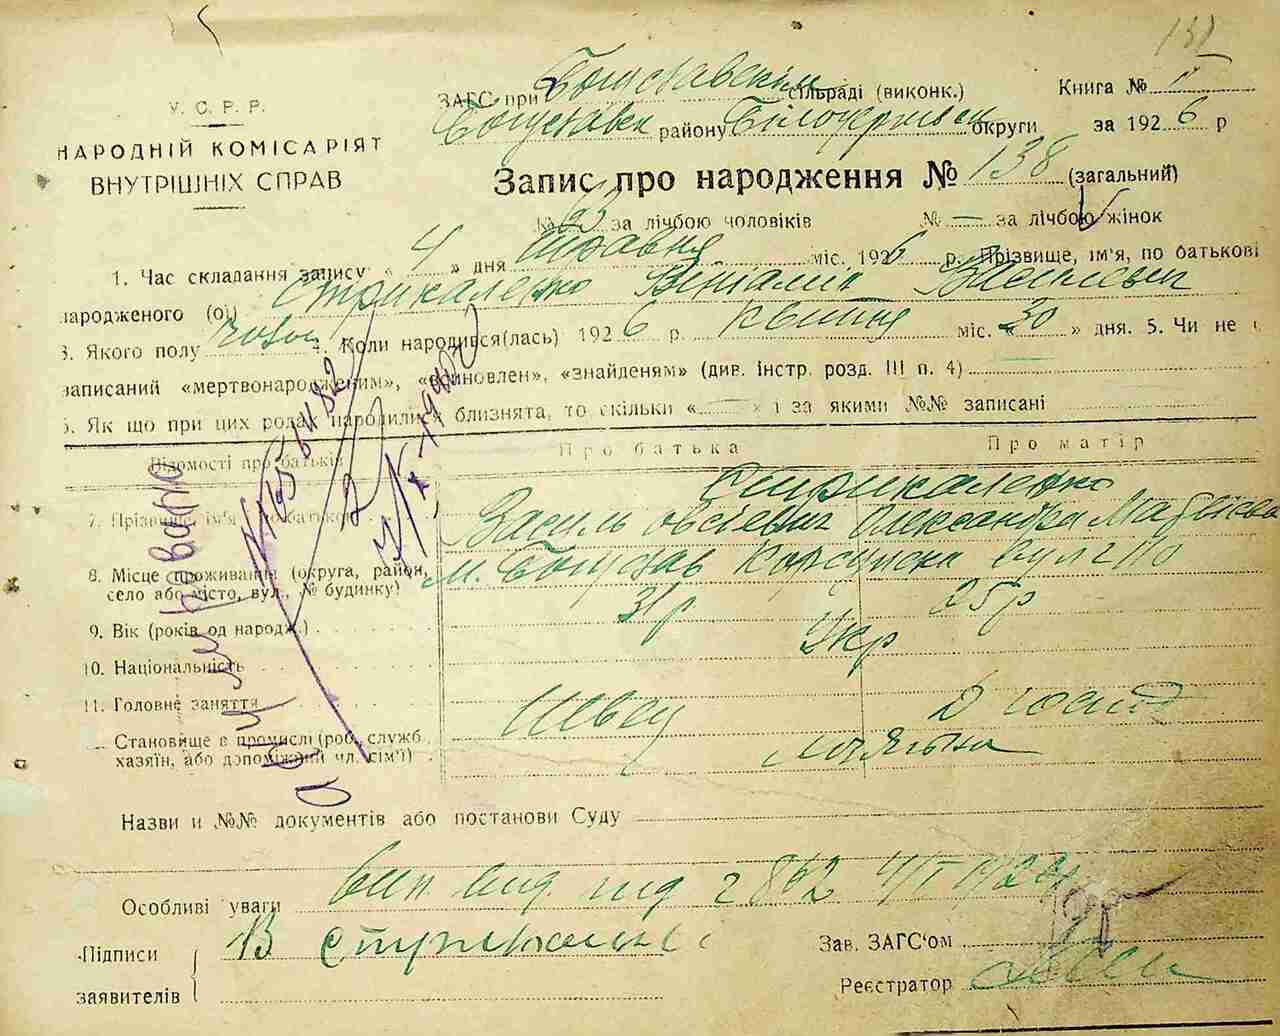 У. С. Р. Р.
НАРОДНІЙ КОМІСАРІЯТ
ВНУТРІШНІХ СПРАВ
ЗАГС при Богуславскім сільраді (виконк.) Книга №
Богуславск району Білоцерківск округи за 1926 р
Запис про народження № 138 (загальний)
№ 63 за лічбою чоловіків № — за лічбою жінок
1. Час складання запису « 4 » дня травня міс. 1926 р. Прізвище, ім'я, по батькові
народженого (ої) Стрикаленко Веніамін Васильевич
3. Якого полу чолов 4. Коли народився(лась) 1926 р. квітня міс. « 30 » дня. 5. Чи не
записаний «мертвонародженим», «вчиновлен», «знайденям» (див. інстр. розд. III п. 4)
Як що при цих родах народились близнята, то скільки « — » і за якими №№ записані
Відомості про батьків
Про батька
Про матір
Стрикаленко
7. Прізвище, ім'я, по батькові
Василь Овсіевич Олександра
8. Місце проживання (округа, район, село або місто, вул., № будинку)
м. Богуслав Корсунска вул
9. Вік (років од народж.) 31 р 25 р
10. Національність Укр
11. Головне заняття Швец Д господ
Становище в промислі (роб., служб., хазяїн, або допоміжний чл. сім'ї)
Назви и №№ документів або постанови Суду
Особливі уваги
Підписи
заявителів
В
Зав. ЗАГС'ом
Реєстратор